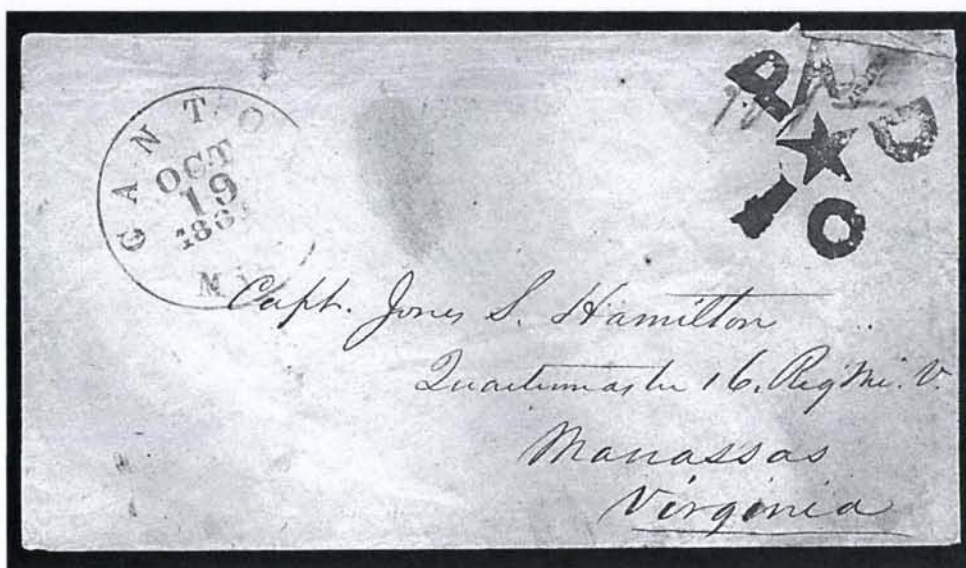 CANTO
OCT
19
186
Mi
PAID
★
10
Capt. Jones S. Hamilton
Quartermaster 16. Reg Mi. V.
Manassas
Virginia